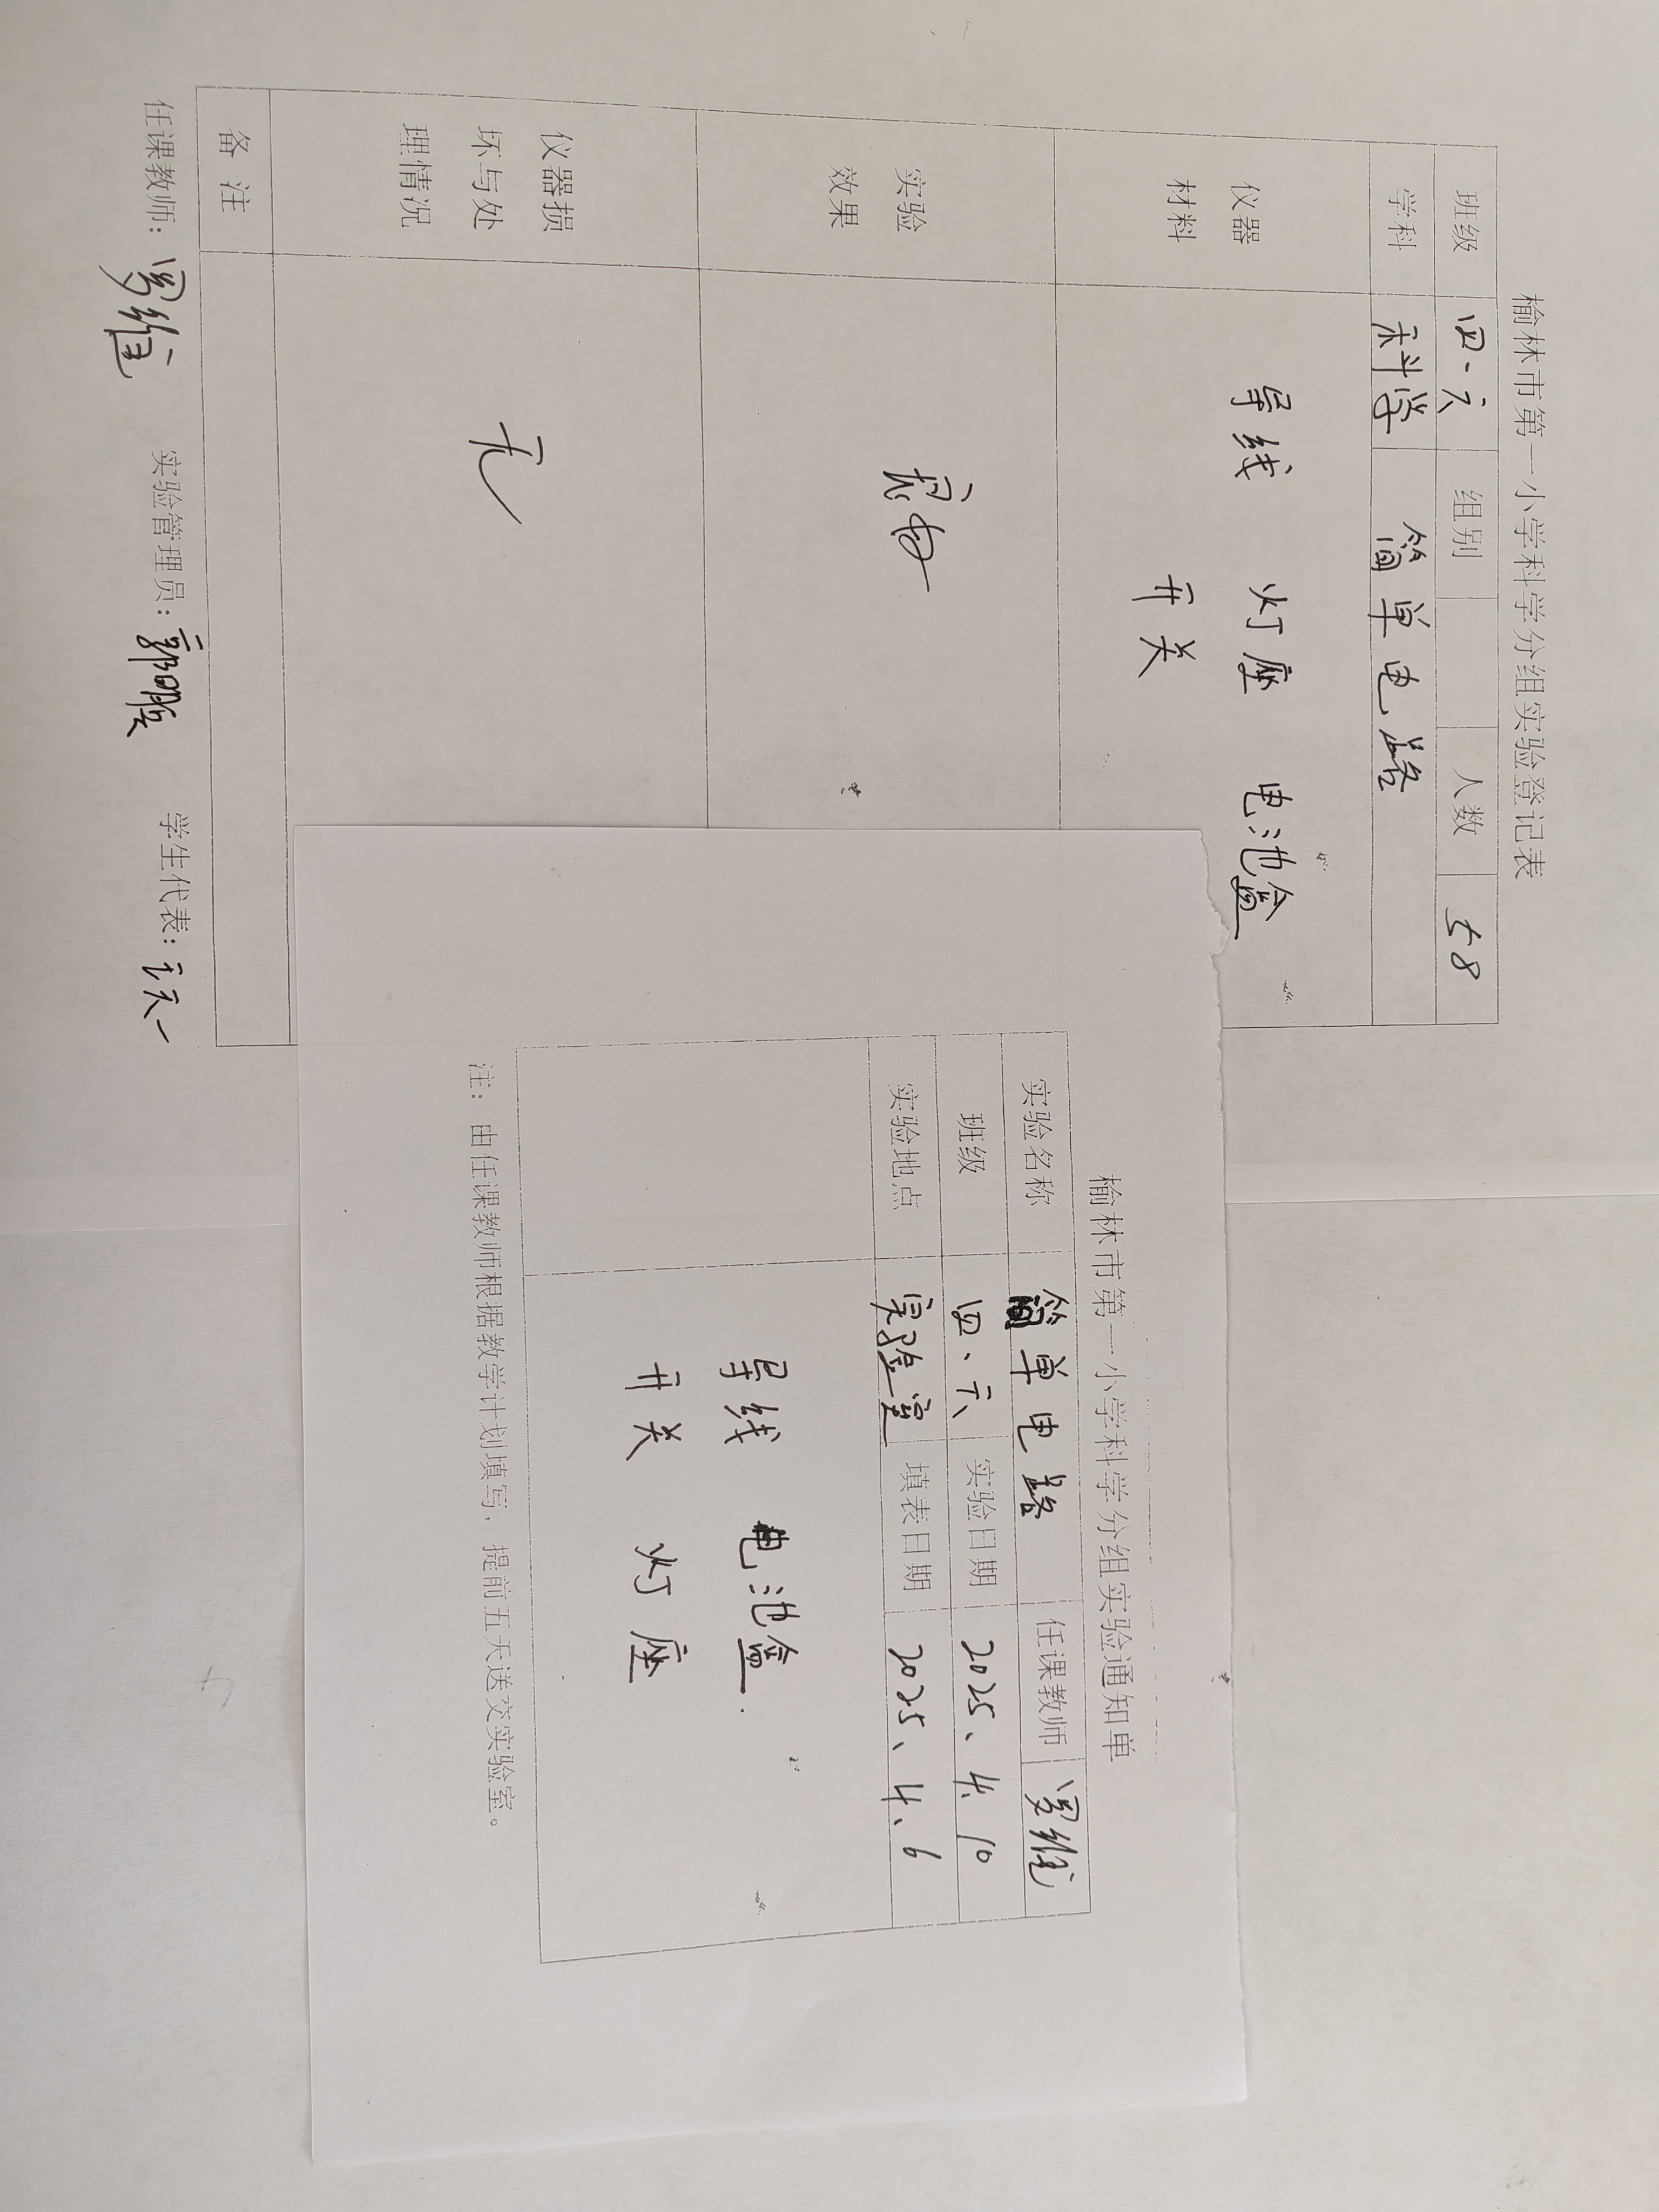 榆林市第一小学科学分组实验登记表
班级 四、六 组别 人数 58
学科 科学 简单电路
仪器 导线 灯座 电池盒
材料 开关
实验
效果 良好
仪器损
坏与处 无
理情况
备 注
任课教师: 实验管理员: 学生代表:
榆林市第一小学科学分组实验通知单
实验名称 简单电路 任课教师
班级 四、六 实验日期 2025、4、10
实验地点 实验室 填表日期 2025、4、6
导线 电池盒.
开关 灯座
注: 由任课教师根据教学计划填写, 提前五天送交实验室。